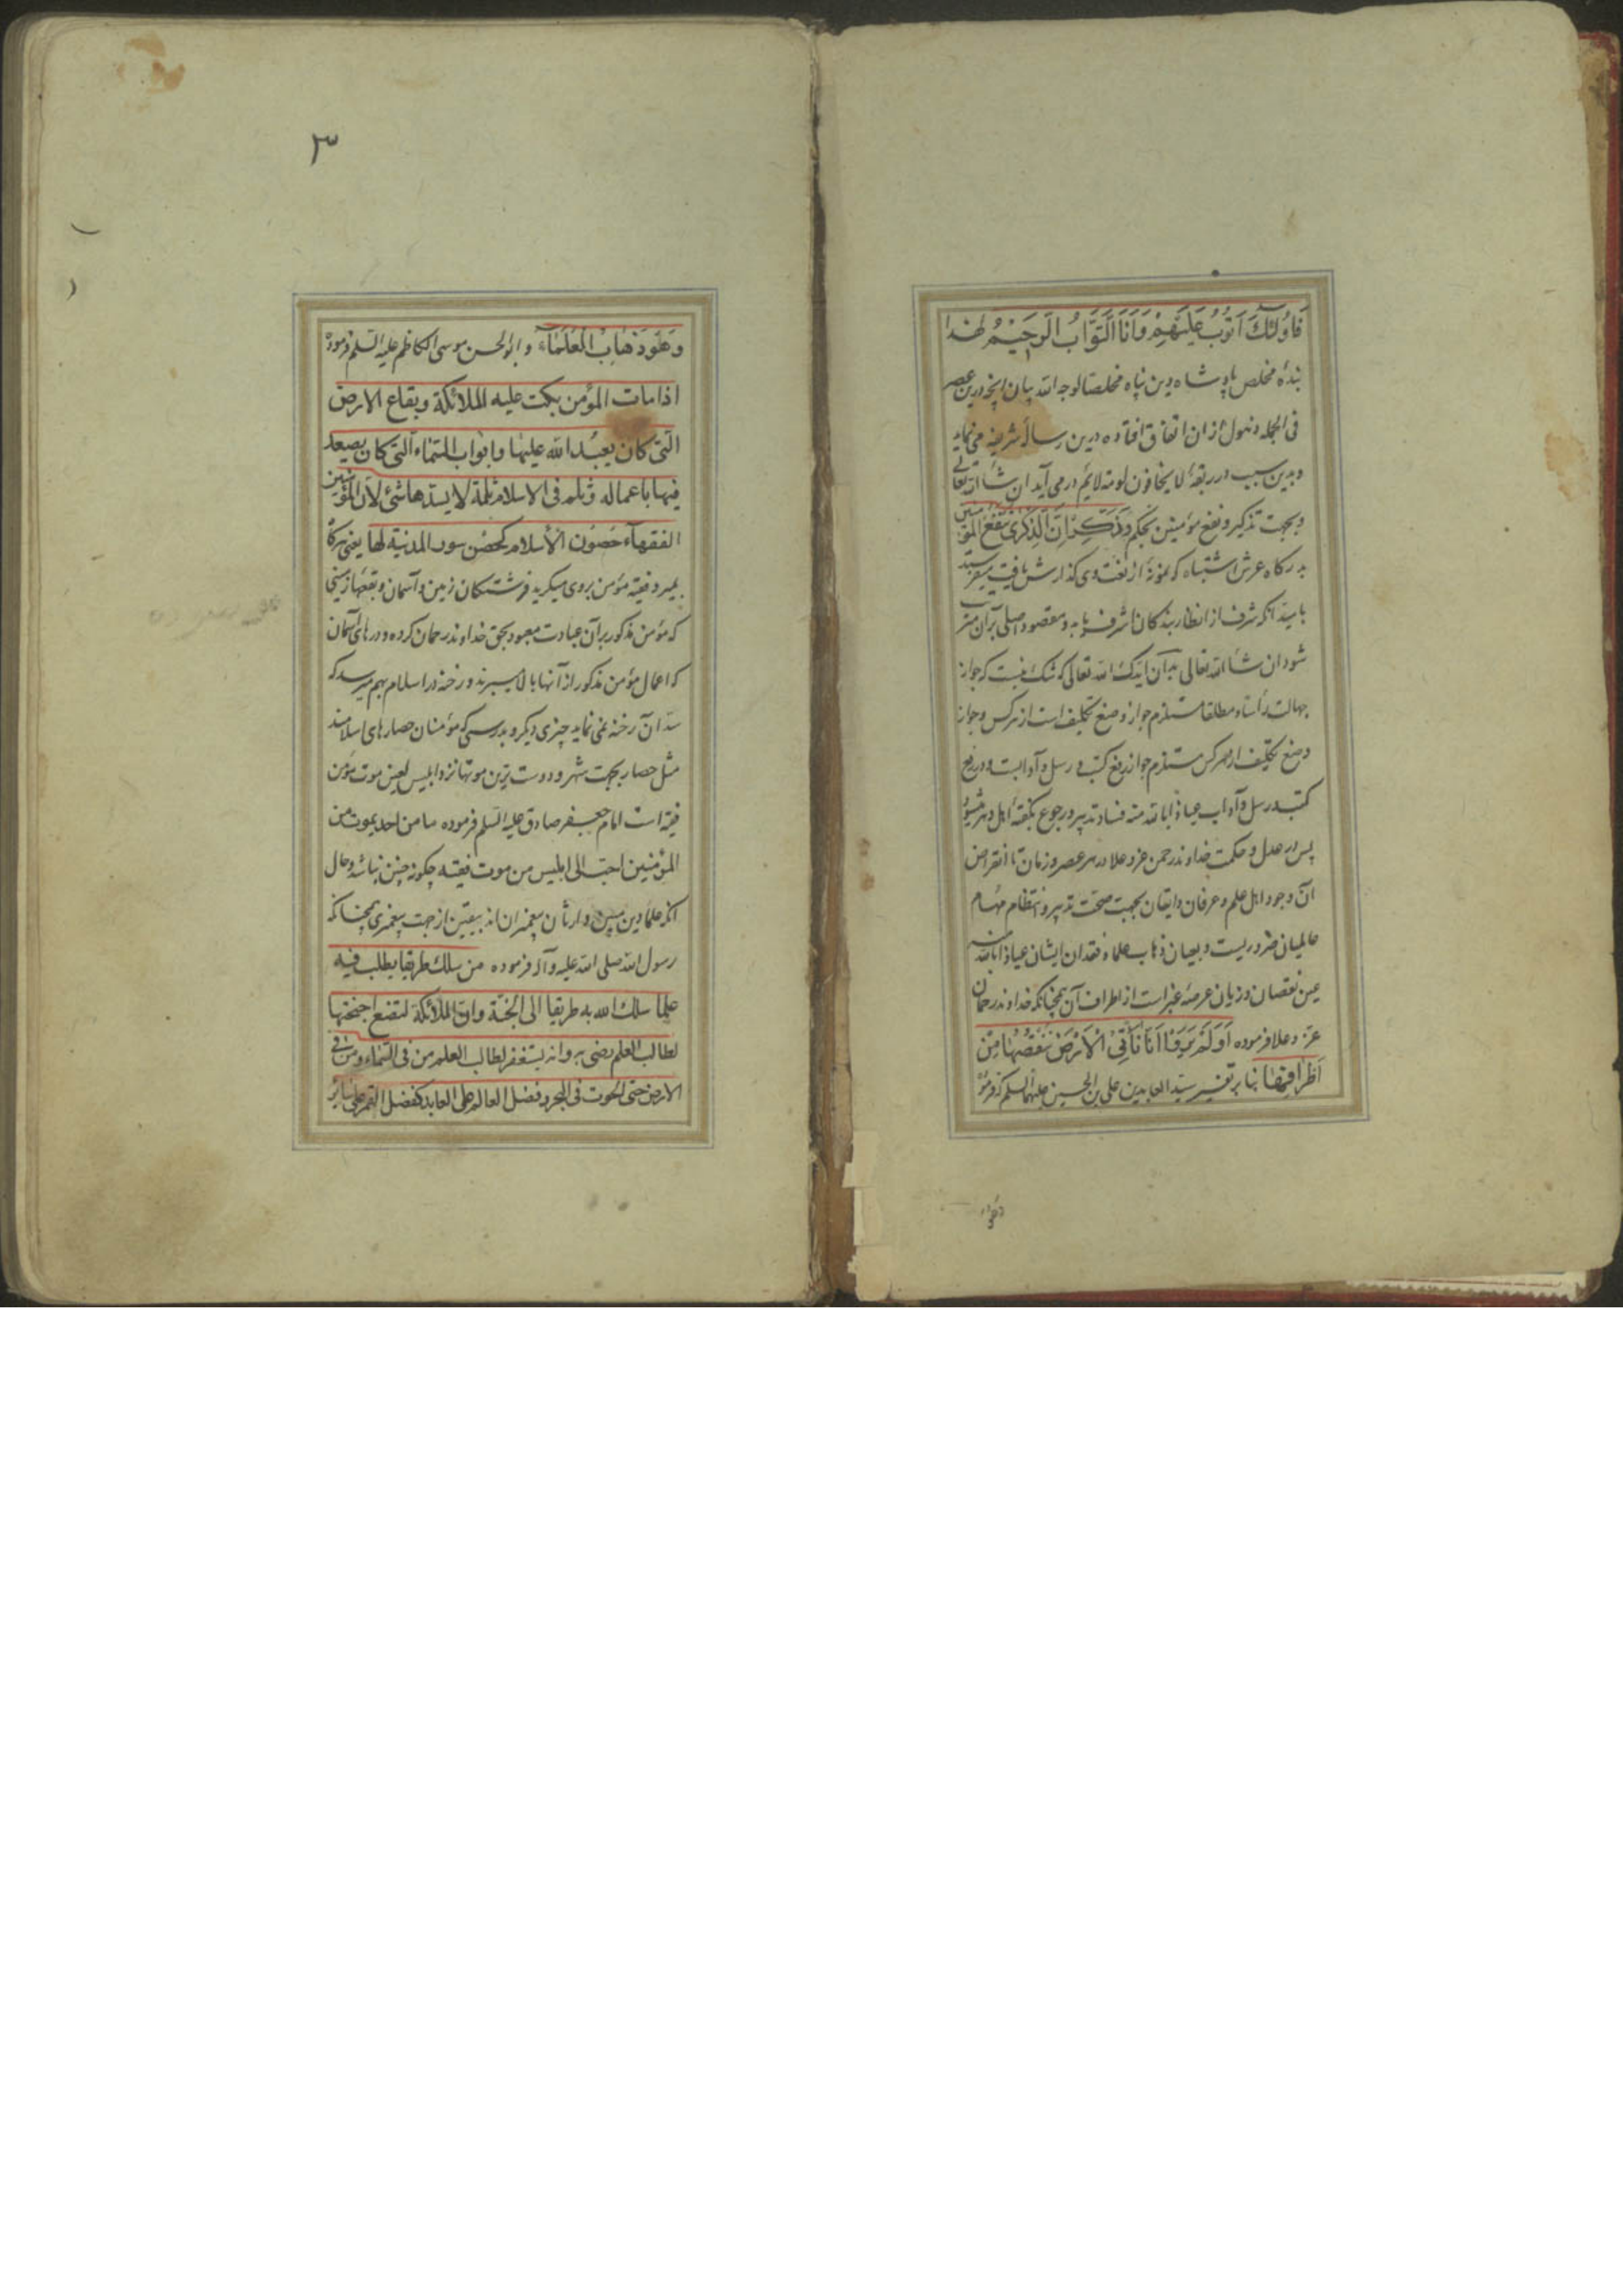 فَاُولٰئِكَ اَتُوبُ عَلَيْهِمْ وَاَنَا التَّوَّابُ الرَّحِيْمُ لهذا
بندهٔ مخلص پادشاه دین پناه مخلصا لوجه الله بیان آنچه درین عصر
فی الجمله ذهول از ان اتفاق افتاده درین رسالهٔ شریفه می نماید
وبدین سبب در ربقهٔ لا یخافون لومة لائم در می آید ان شاء الله تعالی
وبجهت تذکیر ونفع مؤمنین بحکم وَذَكِّرْ فَاِنَّ الذِّكْرٰى تَنْفَعُ الْمُؤْمِنِينَ
بدرگاه عرش اشتباه که نمونهٔ از نعت وی گذارش یافت میفرستد
باميد آنکه شرف از انظار بندگان اشرف یابد ومقصود اصلی بر آن مترتب
شود ان شاء الله تعالی بدان ایّدک الله تعالی که شک نیست که جواز
جهالت رأسا ومطلقا مستلزم جواز وضع تکلیف است از هرکس وجواز
وضع تکلیف از هرکس مستلزم جواز رفع کتب و رسل و آدابست ودر رفع
کتب ورسل وآداب عیاذا بالله منه فساد تدبیر ورجوع بگفتهٔ اهل دهر میشود
پس در عدل و حکمت خداوند رحمن عز وعلا در هر عصر وزمان تا انقراض
آن وجود اهل علم وعرفان وایقان بجهت صحّت تدبیر وانتظام مهام
عالمیان ضروریست وبعیان ذهاب علماء وفقدان ایشان عیاذا بالله منه
عین نقصان وزیان عرصهٔ غبراست از اطراف آن همچنانکه خداوند رحمان
عزّ وعلا فرموده اَوَلَمْ يَرَوْا اَنَّا نَأْتِى الْاَرْضَ نَنْقُصُهَا مِنْ
اَطْرَافِهَا بنا بر تفسیر سیّد العابدین علی بن الحسین علیهما السلم که فرموده
وهو
٣
وَهُوَ ذَهَابُ الْعُلَمَاءِ و ابو الحسن موسی الکاظم علیه السّلم فرموده
اذا مات المؤمن بكت عليه الملائكة وبقاع الارض
الّتى كان يعبد الله عليها وابواب السّماء الّتى كان يصعد
فيها باعماله وثلم فى الاسلام ثلمة لا يسدها شئ لان المؤمنين
الفقهاء حصون الاسلام كحصن سور المدينة لها یعنی هرگاه
بمیرد فقیه مؤمن بر وی میگرید فرشتگان زمین وآسمان وبقعها زمینی
که مؤمن مذکور بر آن عبادت معبود بحق خداوند رحمان کرده ودرهای آسمان
که اعمال مؤمن مذکور از آنها بالا میبرند و رخنه در اسلام بهم میرسد که
سدّ آن رخنه نمی نماید چیزی دیگر وبدرستی که مؤمنان حصارهای اسلامند
مثل حصار بجهت شهر ودوست ترین موتها نزد ابلیس لعین موت مؤمن
فقیه است امام جعفر صادق علیه السّلم فرموده ما من احد يموت من
المؤمنين احبّ الى ابليس من موت فقيه چگونه چنین نباشد وحال
آنکه علماء دین مبین وارثان پیغمبران اند بیقین از جهت پیغمبری همچنانکه
رسول الله صلی الله علیه وآله فرموده من سلك طريقا يطلب فيه
علما سلك الله به طريقا الى الجنّة وان الملائكة لتضع اجنحتها
لطالب العلم رضى به وانه يستغفر لطالب العلم من فى السّماء ومن فى
الارض حتى الحوت فى البحر وفضل العالم على العابد كفضل القمر على سائر